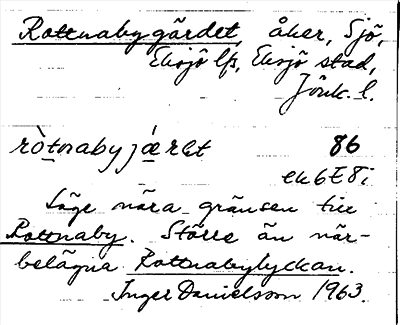 Rottnabygärdet, åker, Sjö,
Eksjö lfs, Eksjö stad,
Jönk. l.
ròt̲nabyjǽrət 86
ek6E8i
Läge nära gränsen till
Rottnaby. Större än när-
belägna Rottnabylyckan.
Inger Danielsson 1963.